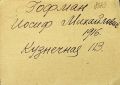 Гофман
Иосиф Михайлович
1916
Кузнечная 113.